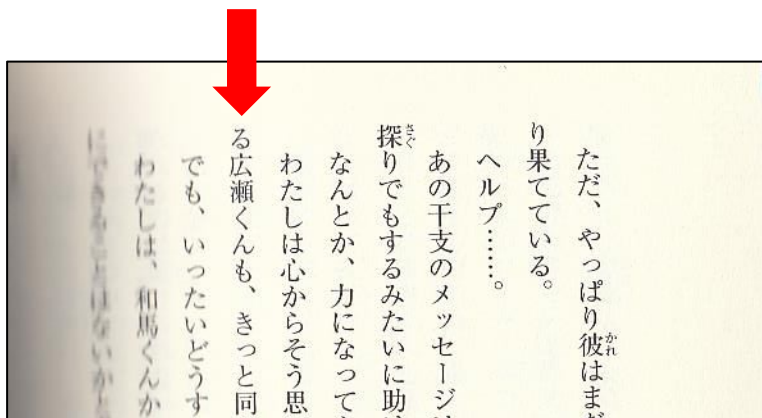 ただ、やっぱり彼はまだ
り果てている。
ヘルプ……。
あの干支のメッセージ
探りでもするみたいに助
なんとか、力になって
わたしは心からそう思
る広瀬くんも、きっと同
でも、いったいどうす
わたしは、和馬くんか
にできることはないかと